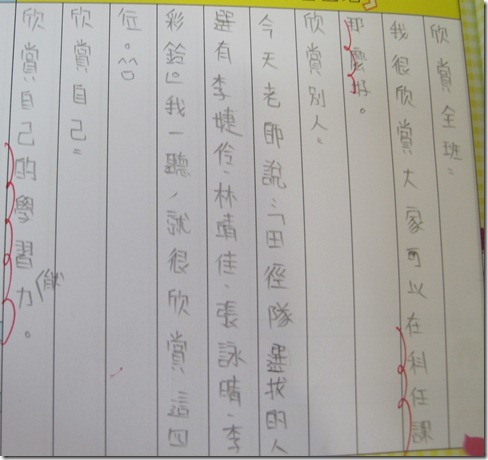 欣賞全班：
我很欣賞大家可以在科任課
那麼好。
欣賞別人：
今天老師說：「田徑隊選找的人
選有李婕伶、林靖佳、張詠晴、李
彩鈴」我一聽，就很欣賞這四
位。
欣賞自己：
欣賞自己的學習(能)力。